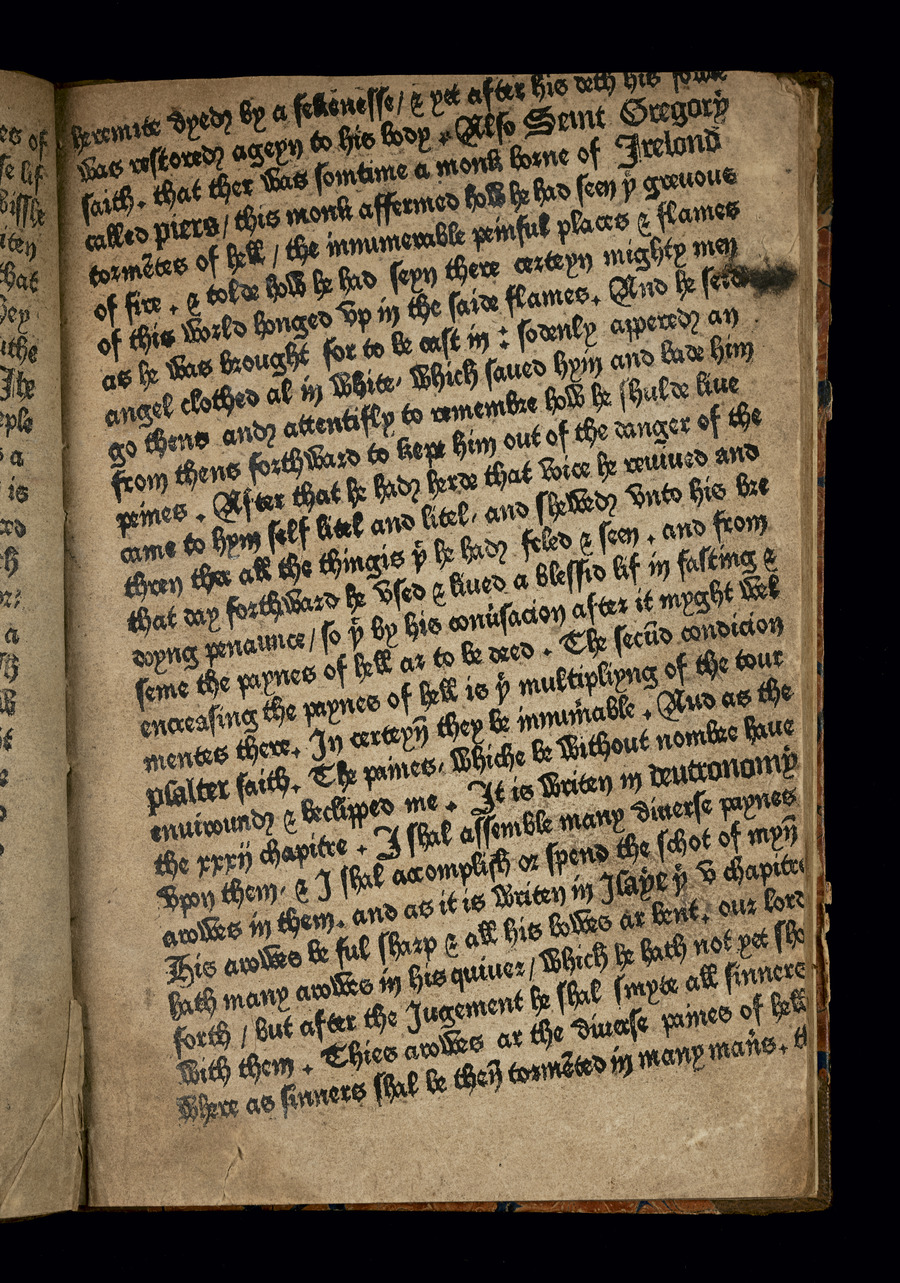 heremite dyed by a sekenesse / & yet after his deth his sowle
was restored ageyn to his body . Also Seint Gregory
saith . that ther was somtime a monk borne of Irelond
called piers / this monk affermed how he had seen yͤ greuous
tormētes of hell / the innumerable peinful places & flames
of fire . & tolde how he had seyn there certeyn mighty men
of this world honged vp in the saide flames . And he seid
as he was brought for to be cast in : sodenly appered an
angel clothed al in white , which saued hym and bade him
go thens and attentifly to remembre how he shulde liue
from thens forthward to kepe him out of the danger of the
peines . After that he had herde that voice he reuiued and
came to hym self litel and litel , and shewed vnto his bre
thren ther all the thingis yͭ he had feled & seen . and from
that day forthward he vsed & liued a blessid lif in fasting &
doyng penaunce / so yͭ by his conuˀsacion after it myght wel
seme the paynes of hell ar to be dred . The secūd condicion
encreasing the paynes of hell is yͤ multipliyng of the tour
mentes there . In certeyn̄ they be innumˀable . Aud as the
psalter saith . The paines , whiche be without nombre haue
enuiround & beclipped me . It is writen in deutronomy
the xxxij chapitre . I shal assemble many diuerse paynes
vpon them , & I shal accomplish or spend the schot of myn̄
arowes in them . and as it is writen in Isaye yͤ v chapitre
His arowes be ful sharp & all his bowes ar bent . our lord
hath many arowes in his quiuer / which he hath not yet sho
forth / but after the Jugement he shal smyte all sinners
with them . Thies arowes ar the diuerse paines of hell
where as sinners shal be then̄ tormēted in many manˀs . th